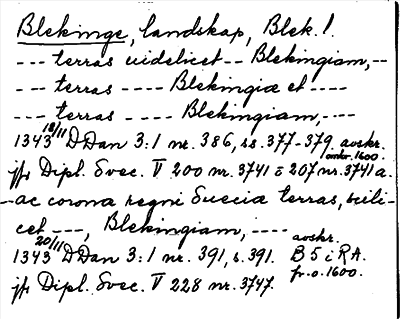 Blekinge, landskap, Blek. l.
--- terras uidelicet -- Blekingiam, --
--- terras ---- Blekingiæ et ----
--- terras ---- Blekingiam, ---
1343 18/11 DDan 3:1 nr. 386, ss. 377-379. avskr. omkr. 1600.
jfr Dipl. Svec. V 200 nr. 3741 o 207 nr. 3741 a.
-- ac corona regni Suecia terras, scili-
cet ---, Blekingiam, ----
1343 20/11 DDan 3:1 nr. 391, s. 391. avskr. B 5 i RA. fr. o. 1600.
jfr Dipl. Svec. V 228 nr. 3747.